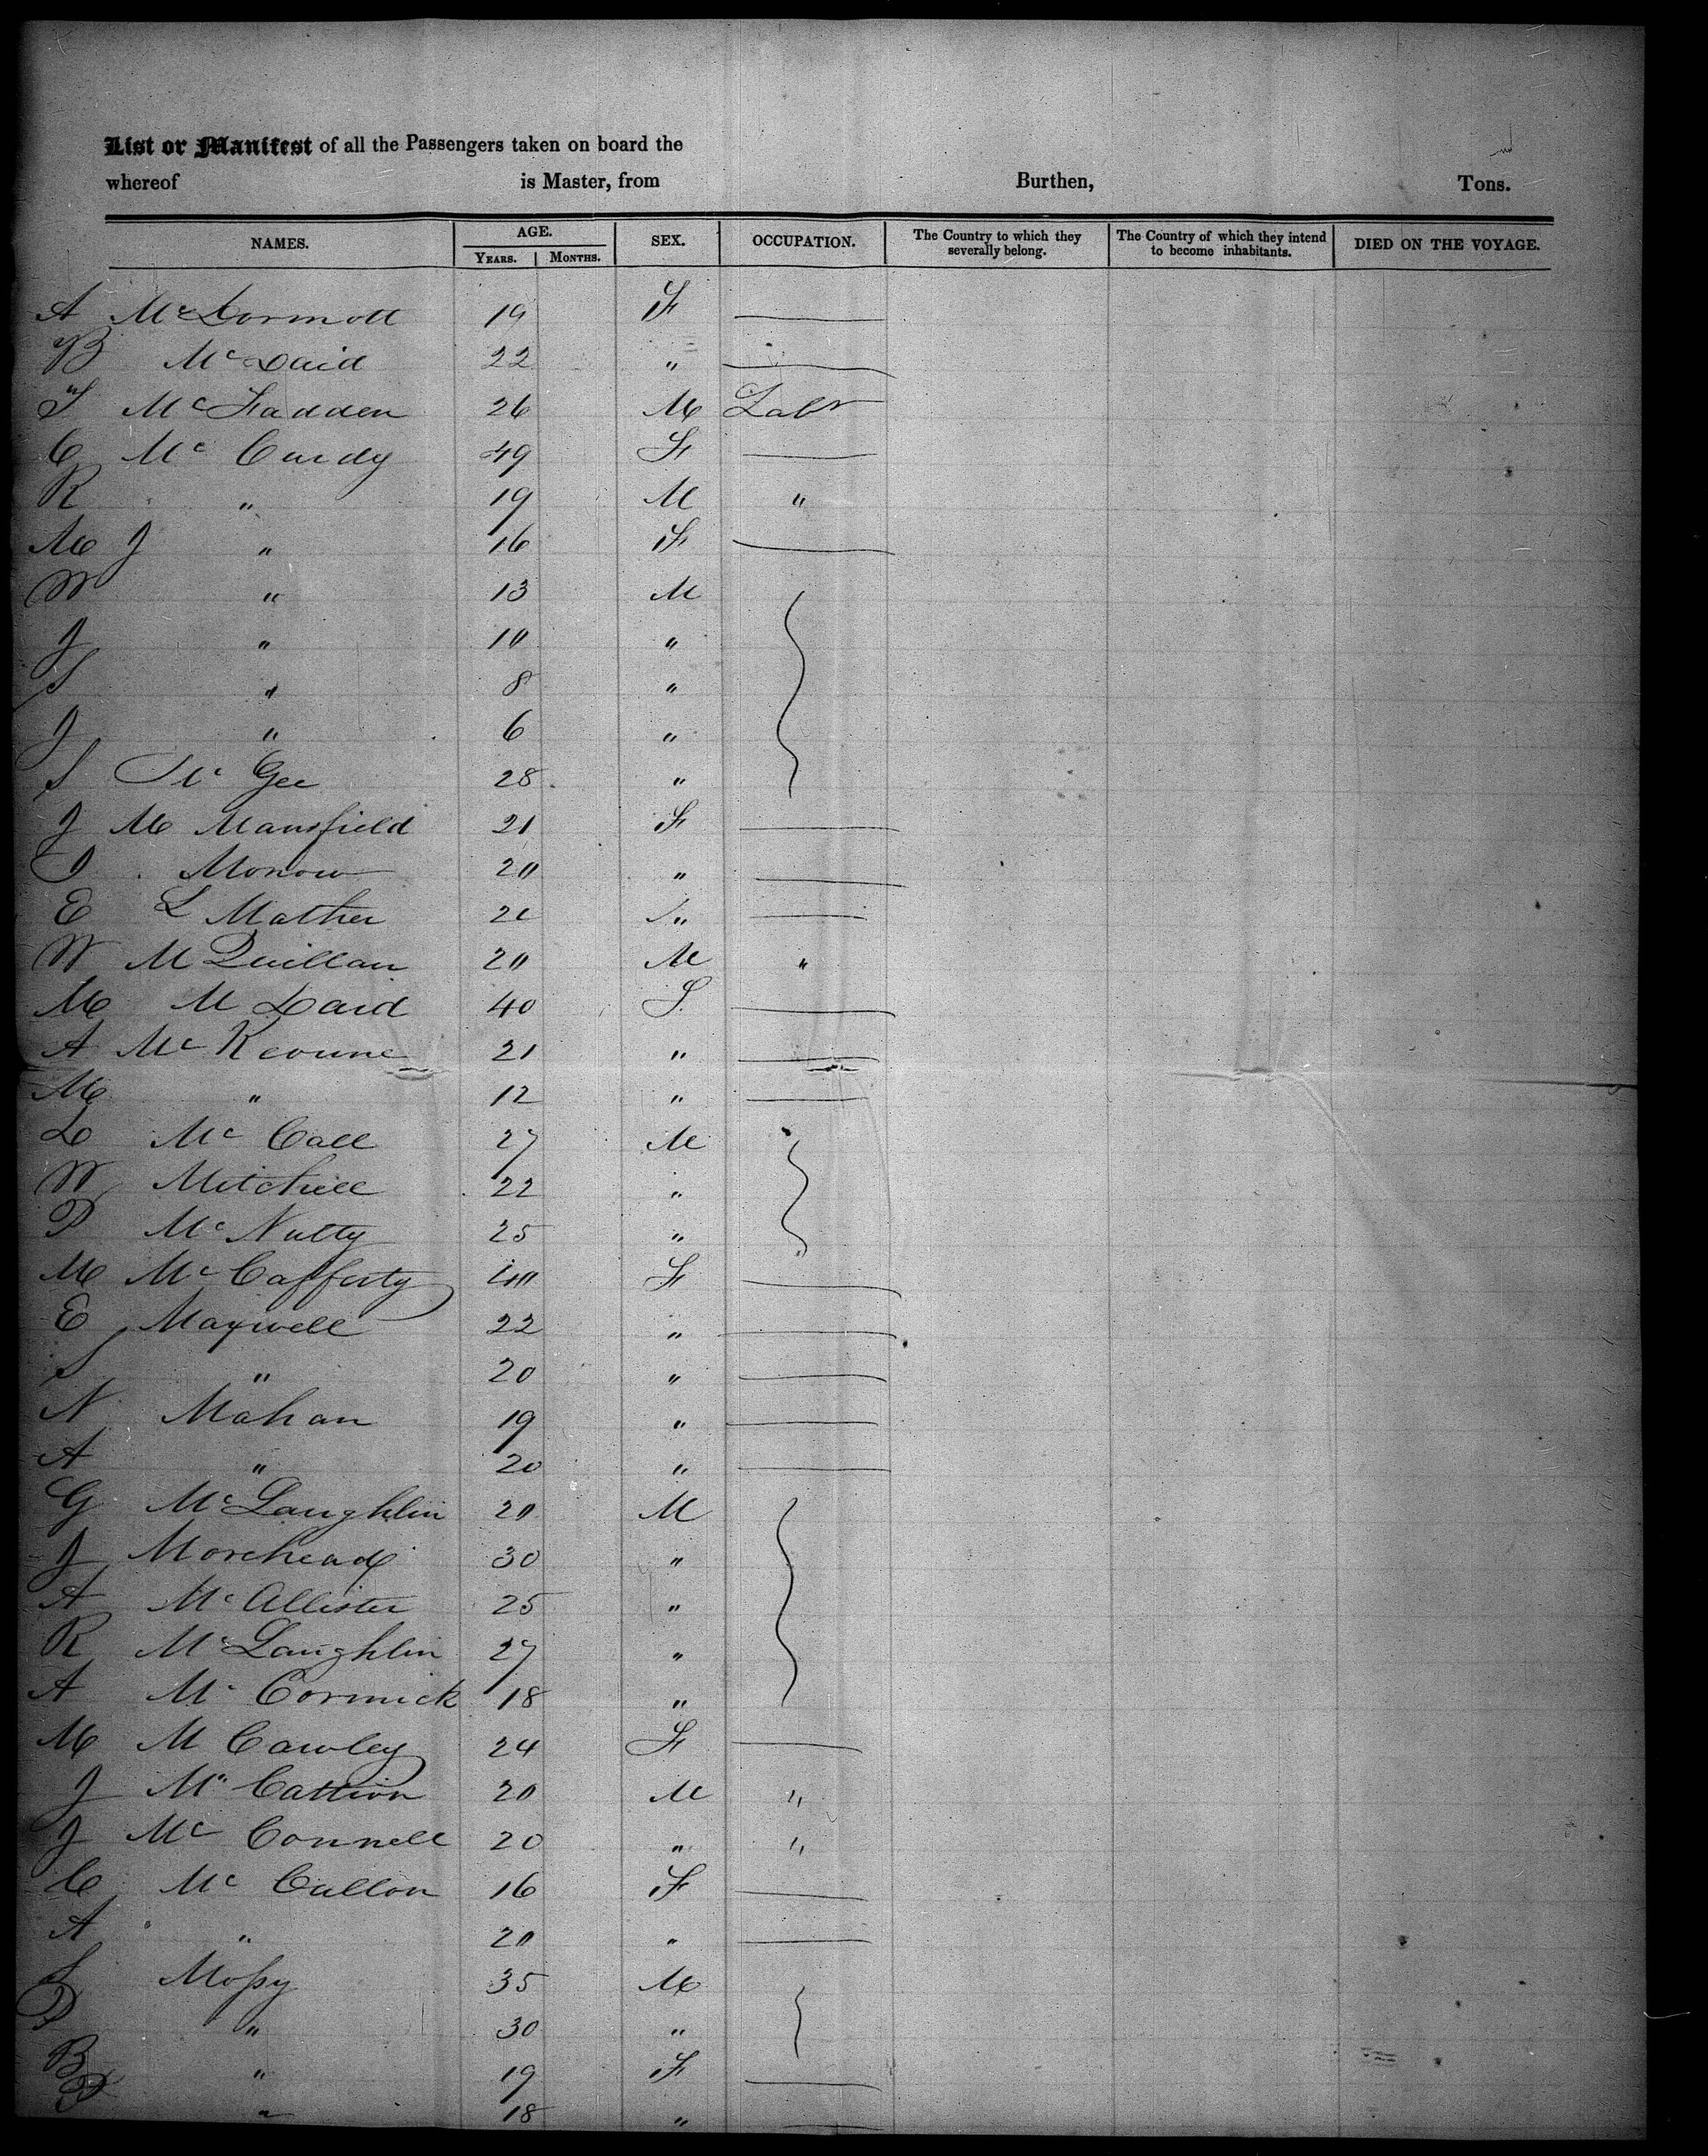 List or Manifest of all the Passengers taken on board the
whereof is Master, from Burthen, Tons.
NAMES. AGE. SEX. OCCUPATION. The Country to which they severally belong. The Country of which they intend to become inhabitants. DIED ON THE VOYAGE.
YEARS. MONTHS.
A McDormott 19 F
B McDaid 22 "
McFadden 26 M Labr
C McCurdy 49 F
R " 19 M "
M J " 16 F
W " 13 M
J " 10 "
S " 8 "
J " 6 "
S McGee 28 "
J M Mansfield 21 F
Morrow 20 "
E L Mather 20 "
W M Quillan 20 M "
M M Daid 40 F
A McKeoune 21 "
M " 12 "
D McCall 27 M
W Mitchell 22 "
P McNulty 25 "
M McCafferty 40 F
E Maxwell 22 "
S " 20 "
N Mahan 19 "
A " 20 "
G McLaughlin 20 M
J Morehead 30 "
A McAllister 25 "
R McLaughlin 27 "
A McCormick 18 "
M M Cawley 24 F
J Mc Cattion 20 M "
J McConnell 20 " "
C McCullon 16 F
A " 20 "
S Mossy 35 M
P " 30 "
B " 19 F
" 18 "